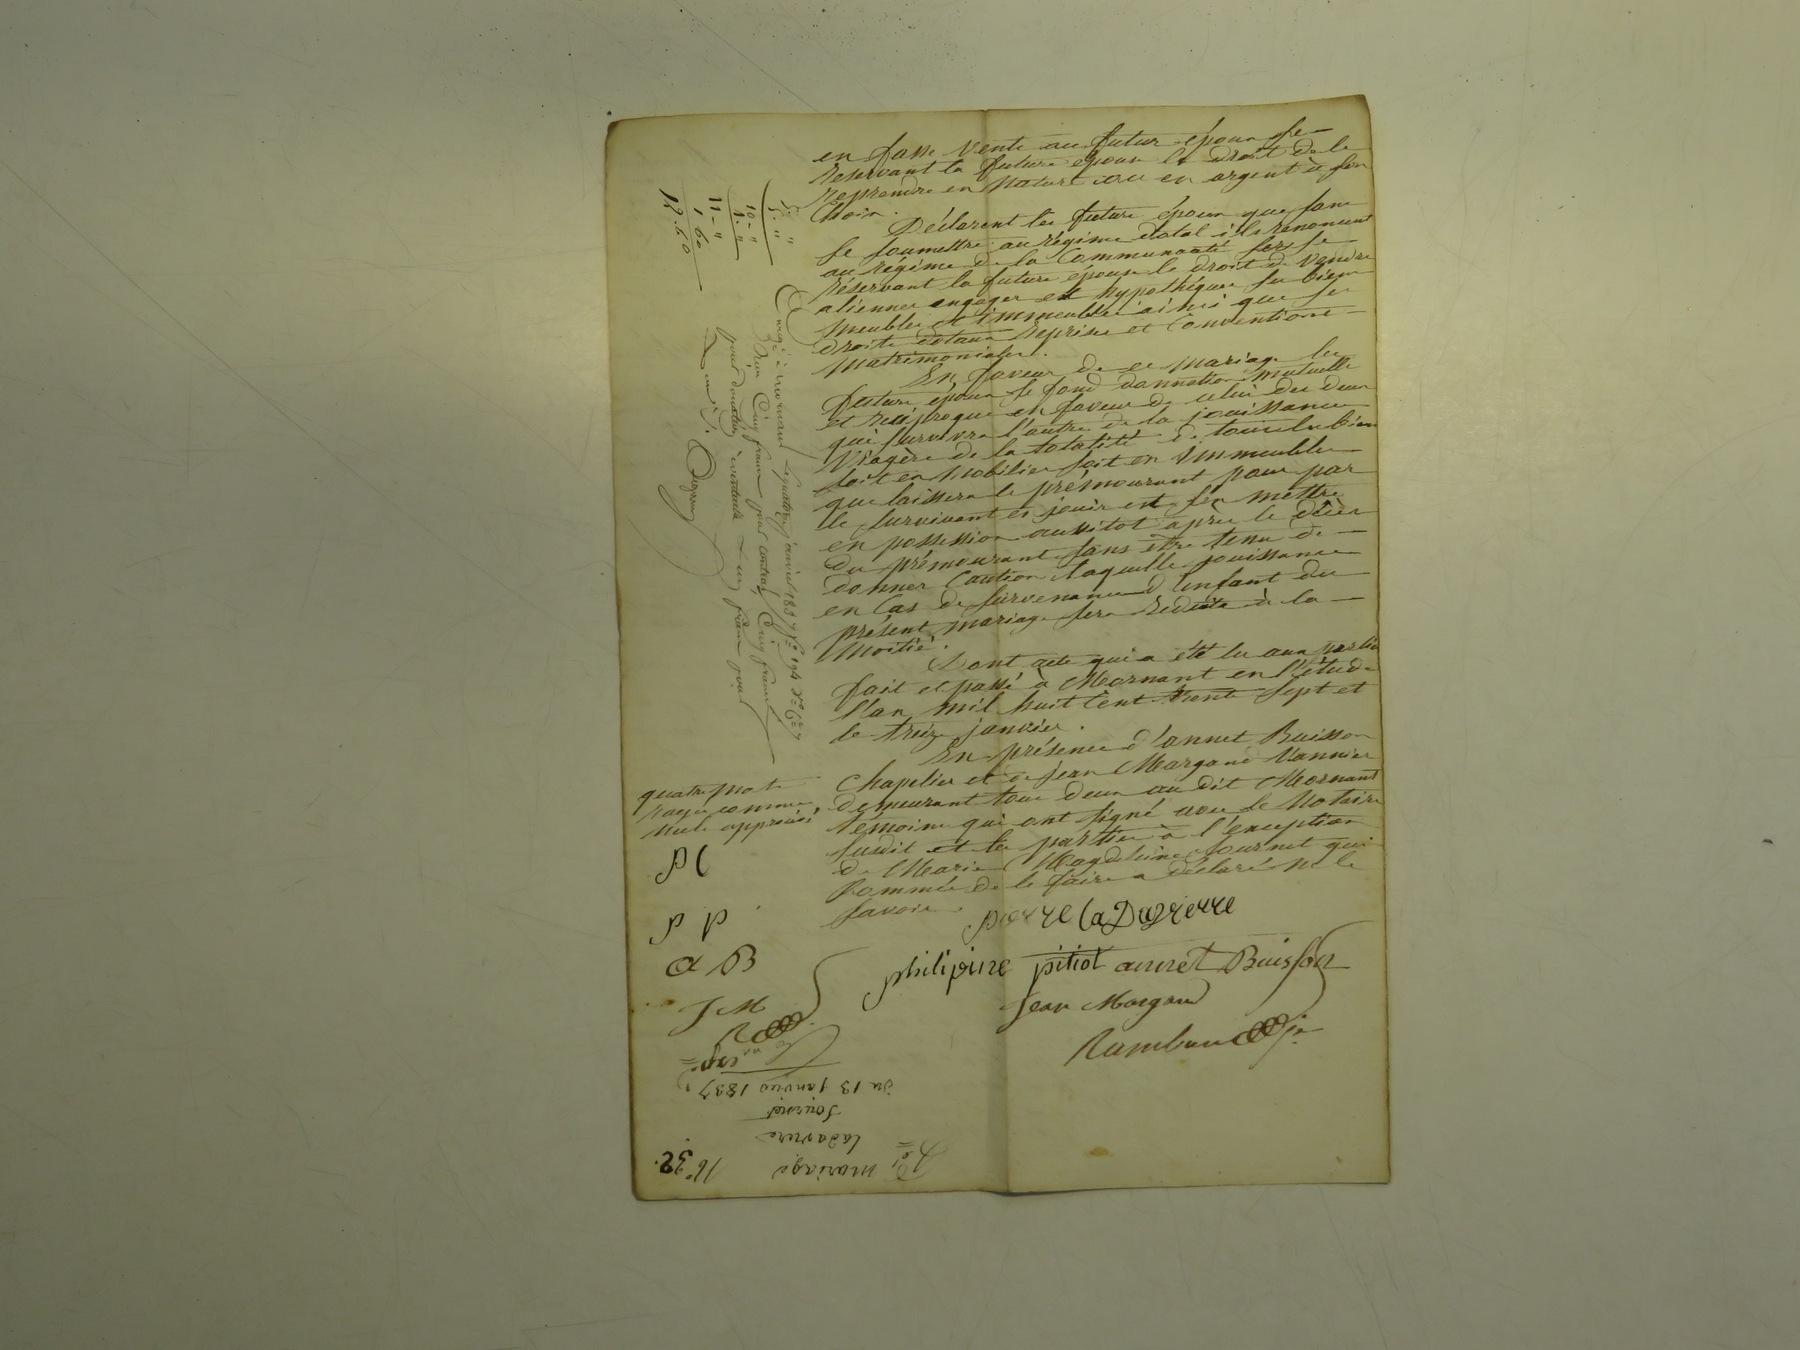 en fasse vente au futur époux se
reservant la future epouse le droit de le
reprendre en Nature ou en argent à son
Choix.
Déclarent les future époux que sans
se soumettre au régime dotal ils renoncent
au régime de la Communauté se
réservant la future épouse le droit de vendre
aliener engager et hypothéquer ses biens
meubles et immeubles ainsi que ses
droits dotaux reprise et Conventions
matrimoniales.
En faveur de ce mariage les
future époux se font donnation mutuelle
et réciproque en faveur de celui des deux
qui survivra l'autre de la jouissance
Viagère de la totalité de tous les biens
soit en Mobilier soit en Immeubles
que laissera le prémourant pour par
le survivant en jouir et s'en mettre
en possession aussitot après le décès
du prémourant sans être tenu de
donner Caution laquelle jouissance
en Cas de survenance d'enfant du
présent mariage sera réduite à la
Moitié.
Dont acte qui a été lu aux parties
fait et passé à Mornant en l'étude
l'an mil huit Cent trente sept et
le treize janvier.
En présence d'annet Buisson
Chapelier et de jean Margand Vannier
demeurant tous deux au dit Mornant
témoins qui ont signé avec le Notaire
susdit et les parties à l'exception
de Marie Magdeleine fournet qui
sommée de le faire a déclaré ne le
savoir.
pierre laDavierre
philipine pitiot annet Buisson
jean Margand
Rambaud
quatre mots
rayés comme
nuls approuvés
P l
P P
a B
J M
R
5-"
5-"
10-"
1-"
11-"
1-60
12-60
Enregé à mornant le quatorze janvier 1837 fo 194
Reçu Cinq francs pour contrat, Cinq francs
pour donation éventuelle un franc pour
du 13 janvier 1837
fournet
ladavierre
mariage
No 32.